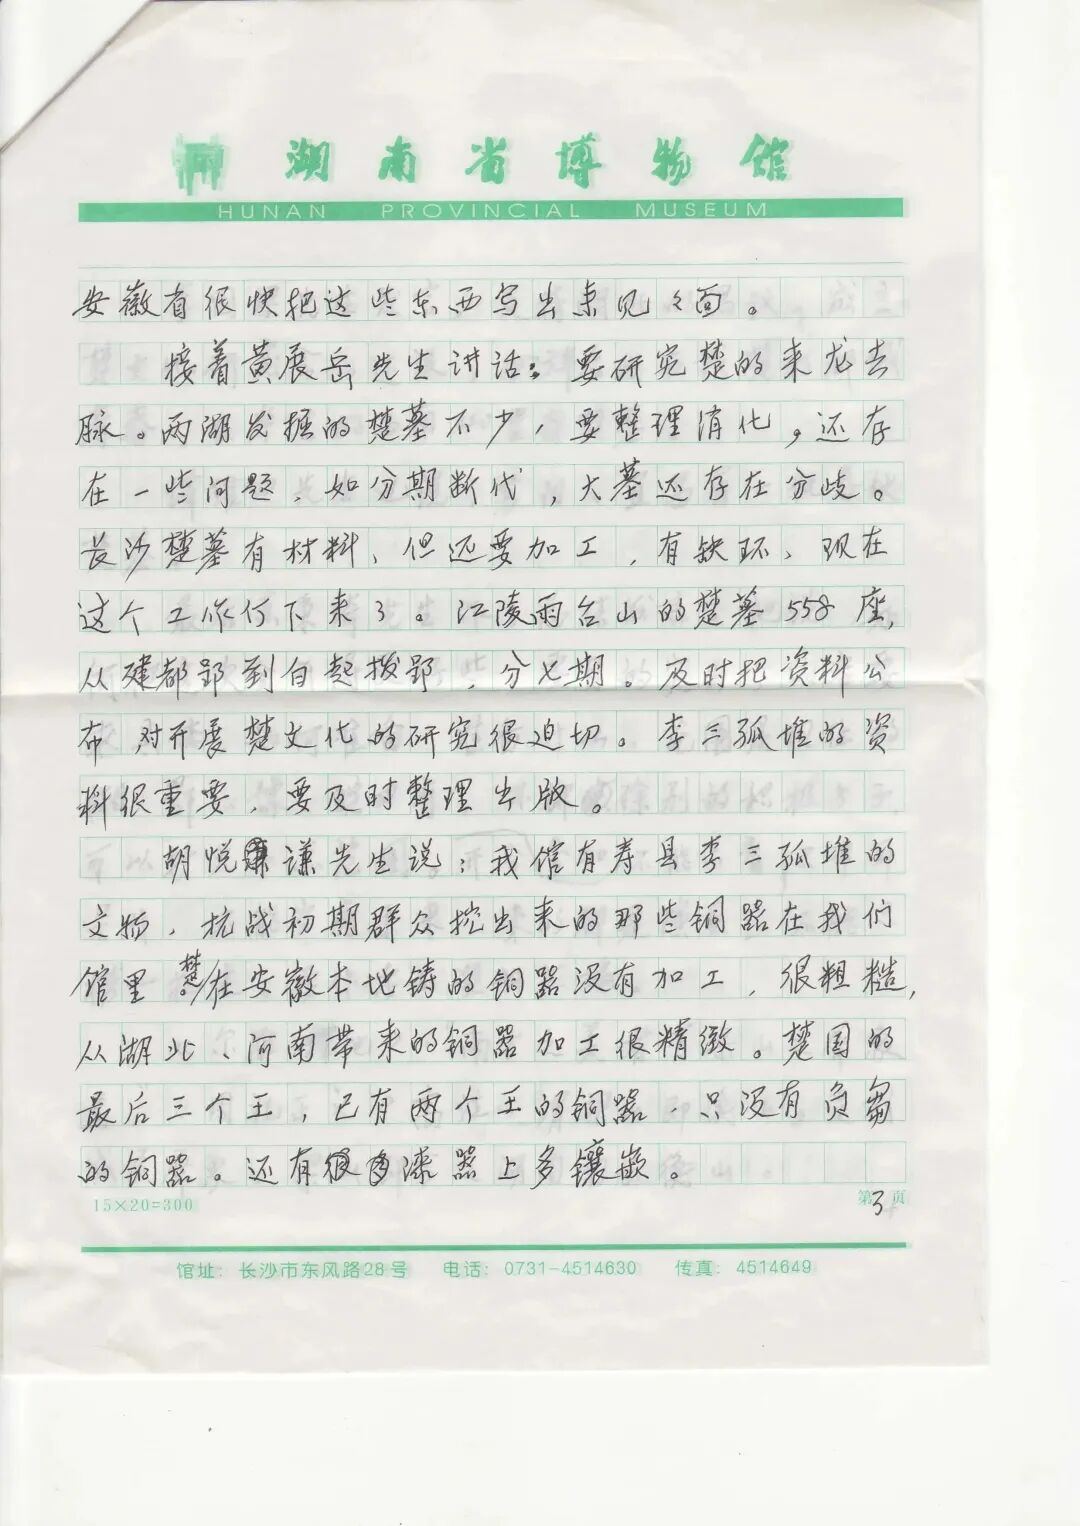 湖南省博物馆
HUNAN PROVINCIAL MUSEUM
安徽省很快把这些东西写出来见々面。
接着黄展岳先生讲话：要研究楚的来龙去
脉。两湖发掘的楚墓不少，要整理消化，还存
在一些问题，如分期断代，大墓还存在分歧。
长沙楚墓有材料，但还要加工，有缺环，现在
这个工作停下来了。江陵雨台山的楚墓558座，
从建都郢到白起拔郢，分七期。及时把资料公
布 对开展楚文化的研究很迫切。李三孤堆的资
料很重要，要及时整理出版。
胡悦谦先生说：我馆有寿县李三孤堆的
文物，抗战初期群众挖出来的那些铜器在我们
馆里。楚在安徽本地铸的铜器没有加工，很粗糙，
从湖北、河南带来的铜器加工很精緻。楚国的
最后三个王，已有两个王的铜器，只没有负芻
的铜器。还有很多漆器上多镶嵌。
15×20=300
第3页
馆址：长沙市东风路28号 电话：0731-4514630 传真：4514649